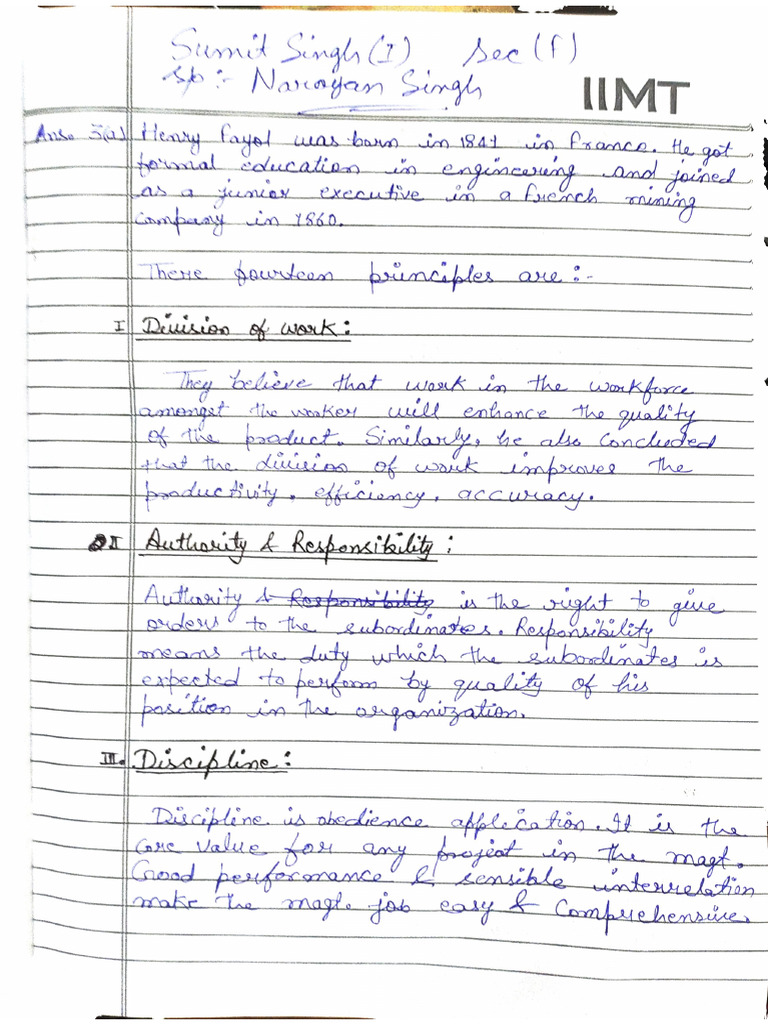 Sumit Singh (I) Sec (f)
S/o :- Narayan Singh
IIMT
Ans. 3(a) Henry Fayol was born in 1841 in France. He got
formal education in engineering and joined
as a junior executive in a french mining
company in 1860.
There fourteen principles are :-
I Division of work :
They believe that work in the workforce
amongst the worker will enhance the quality
of the product. Similarly, he also concluded
that the division of work improves the
productivity, efficiency, accuracy.
II Authority & Responsibility :
Authority & Responsibility is the right to give
orders to the subordinates. Responsibility
means the duty which the subordinates is
expected to perform by quality of his
position in the organization.
III. Discipline :
Discipline is obedience application. It is the
core value for any project in the magt.
Good performance & sensible interrelation
make the magt. job easy & Comprehensive.